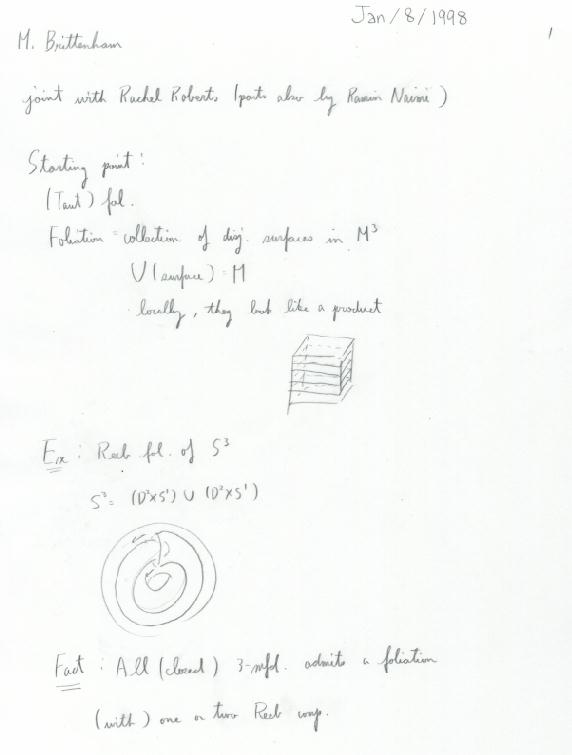 Jan/8/1998
1
M. Brittenham
joint with Rachel Roberts (parts also by Ramin Naimi)
Starting point:
(Taut) fol.
Foliation = collection of disj. surfaces in M³
∪(surface) = M
locally, they look like a product
Ex: Reeb fol. of S³
S³ = (D²×S¹) ∪ (D²×S¹)
Fact: All (closed) 3-mfd. admits a foliation
(with) one or two Reeb comp.